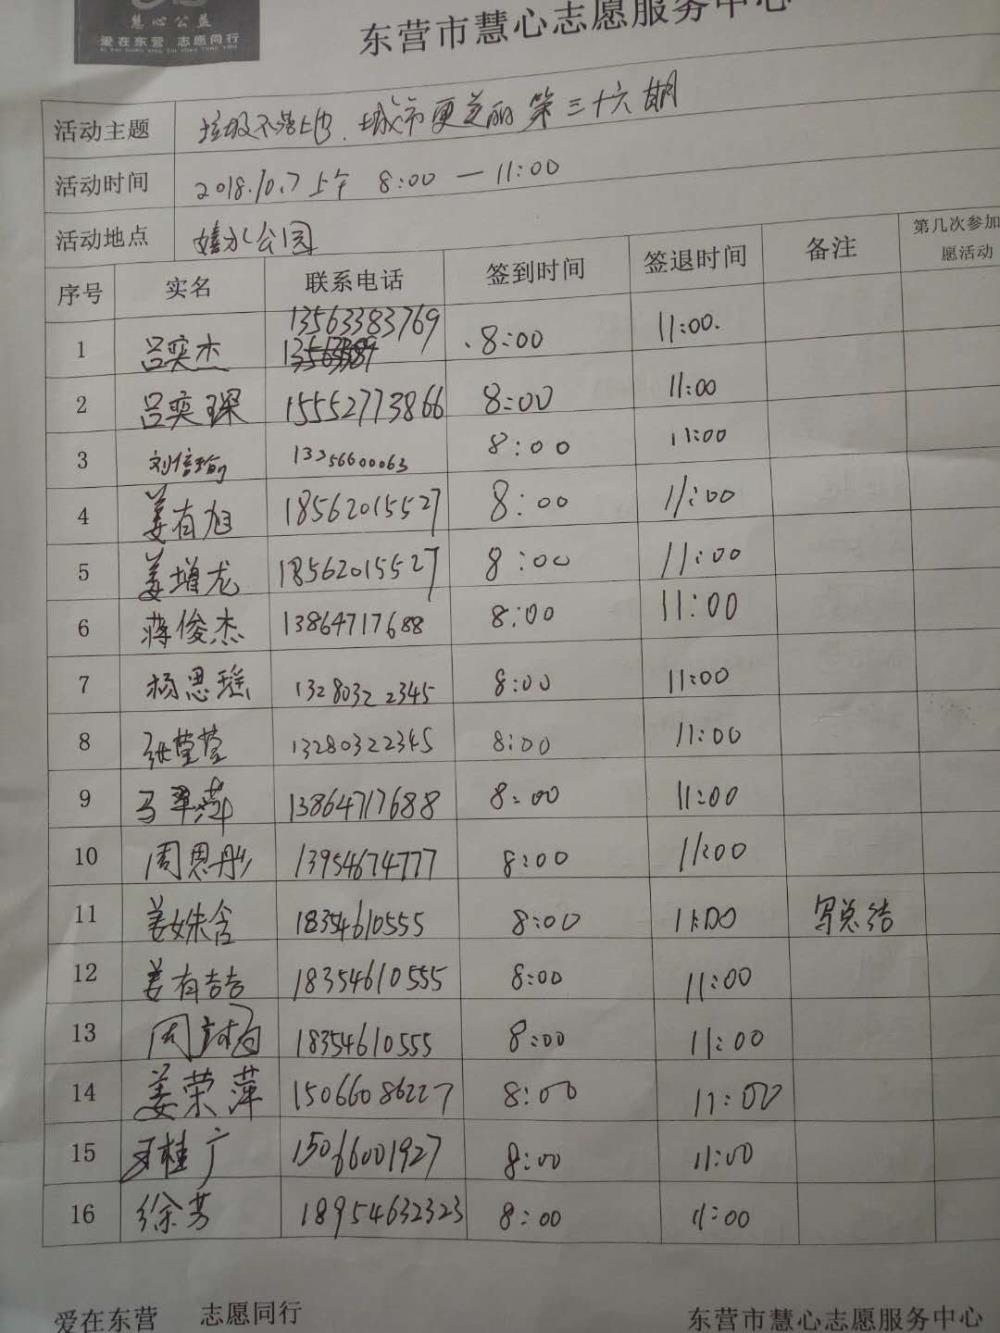 慧心公益
爱在东营 志愿同行
东营市慧心志愿服务中心
活动主题 垃圾不落地.城市更美丽第三十六期
活动时间 2018.10.7上午 8:00 — 11:00
活动地点 嬉水公园
序号 实名 联系电话 签到时间 签退时间 备注 第几次参加
愿活动
1 吕奕杰 13563383769 8:00 11:00.
2 吕奕琛 15552773866 8:00 11:00
3 刘信瑜 13256600063 8:00 11:00
4 姜有旭 18562015527 8:00 11:00
5 姜增龙 18562015527 8:00 11:00
6 蒋俊杰 13864717688 8:00 11:00
7 杨思瑶 13280322345 8:00 11:00
8 张莹莹 13280322345 8:00 11:00
9 马翠萍 13864717688 8:00 11:00
10 周思彤 13954674777 8:00 11:00
11 姜姝含 18354610555 8:00 11:00 写总结
12 姜有喆 18354610555 8:00 11:00
13 周 18354610555 8:00 11:00
14 姜荣萍 15066086227 8:00 11:00
15 桂广 15066001927 8:00 11:00
16 徐芳 18954632323 8:00 11:00
爱在东营 志愿同行 东营市慧心志愿服务中心